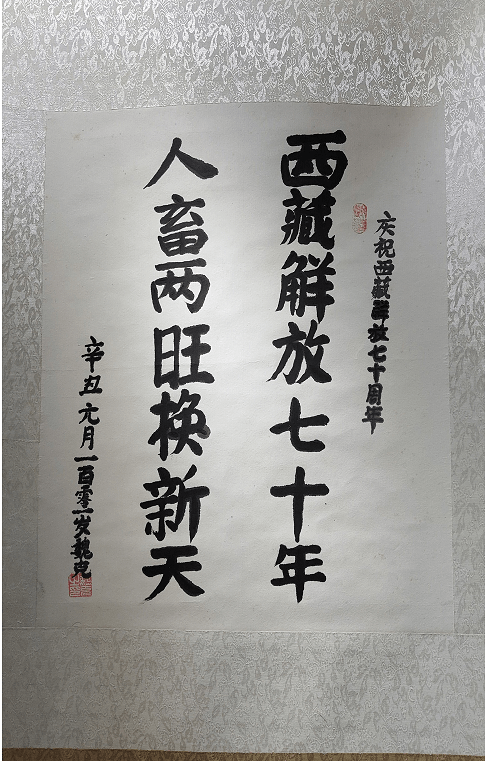 庆祝西藏解放七十周年
西藏解放七十年
人畜两旺换新天
辛丑元月一百零一岁魏克